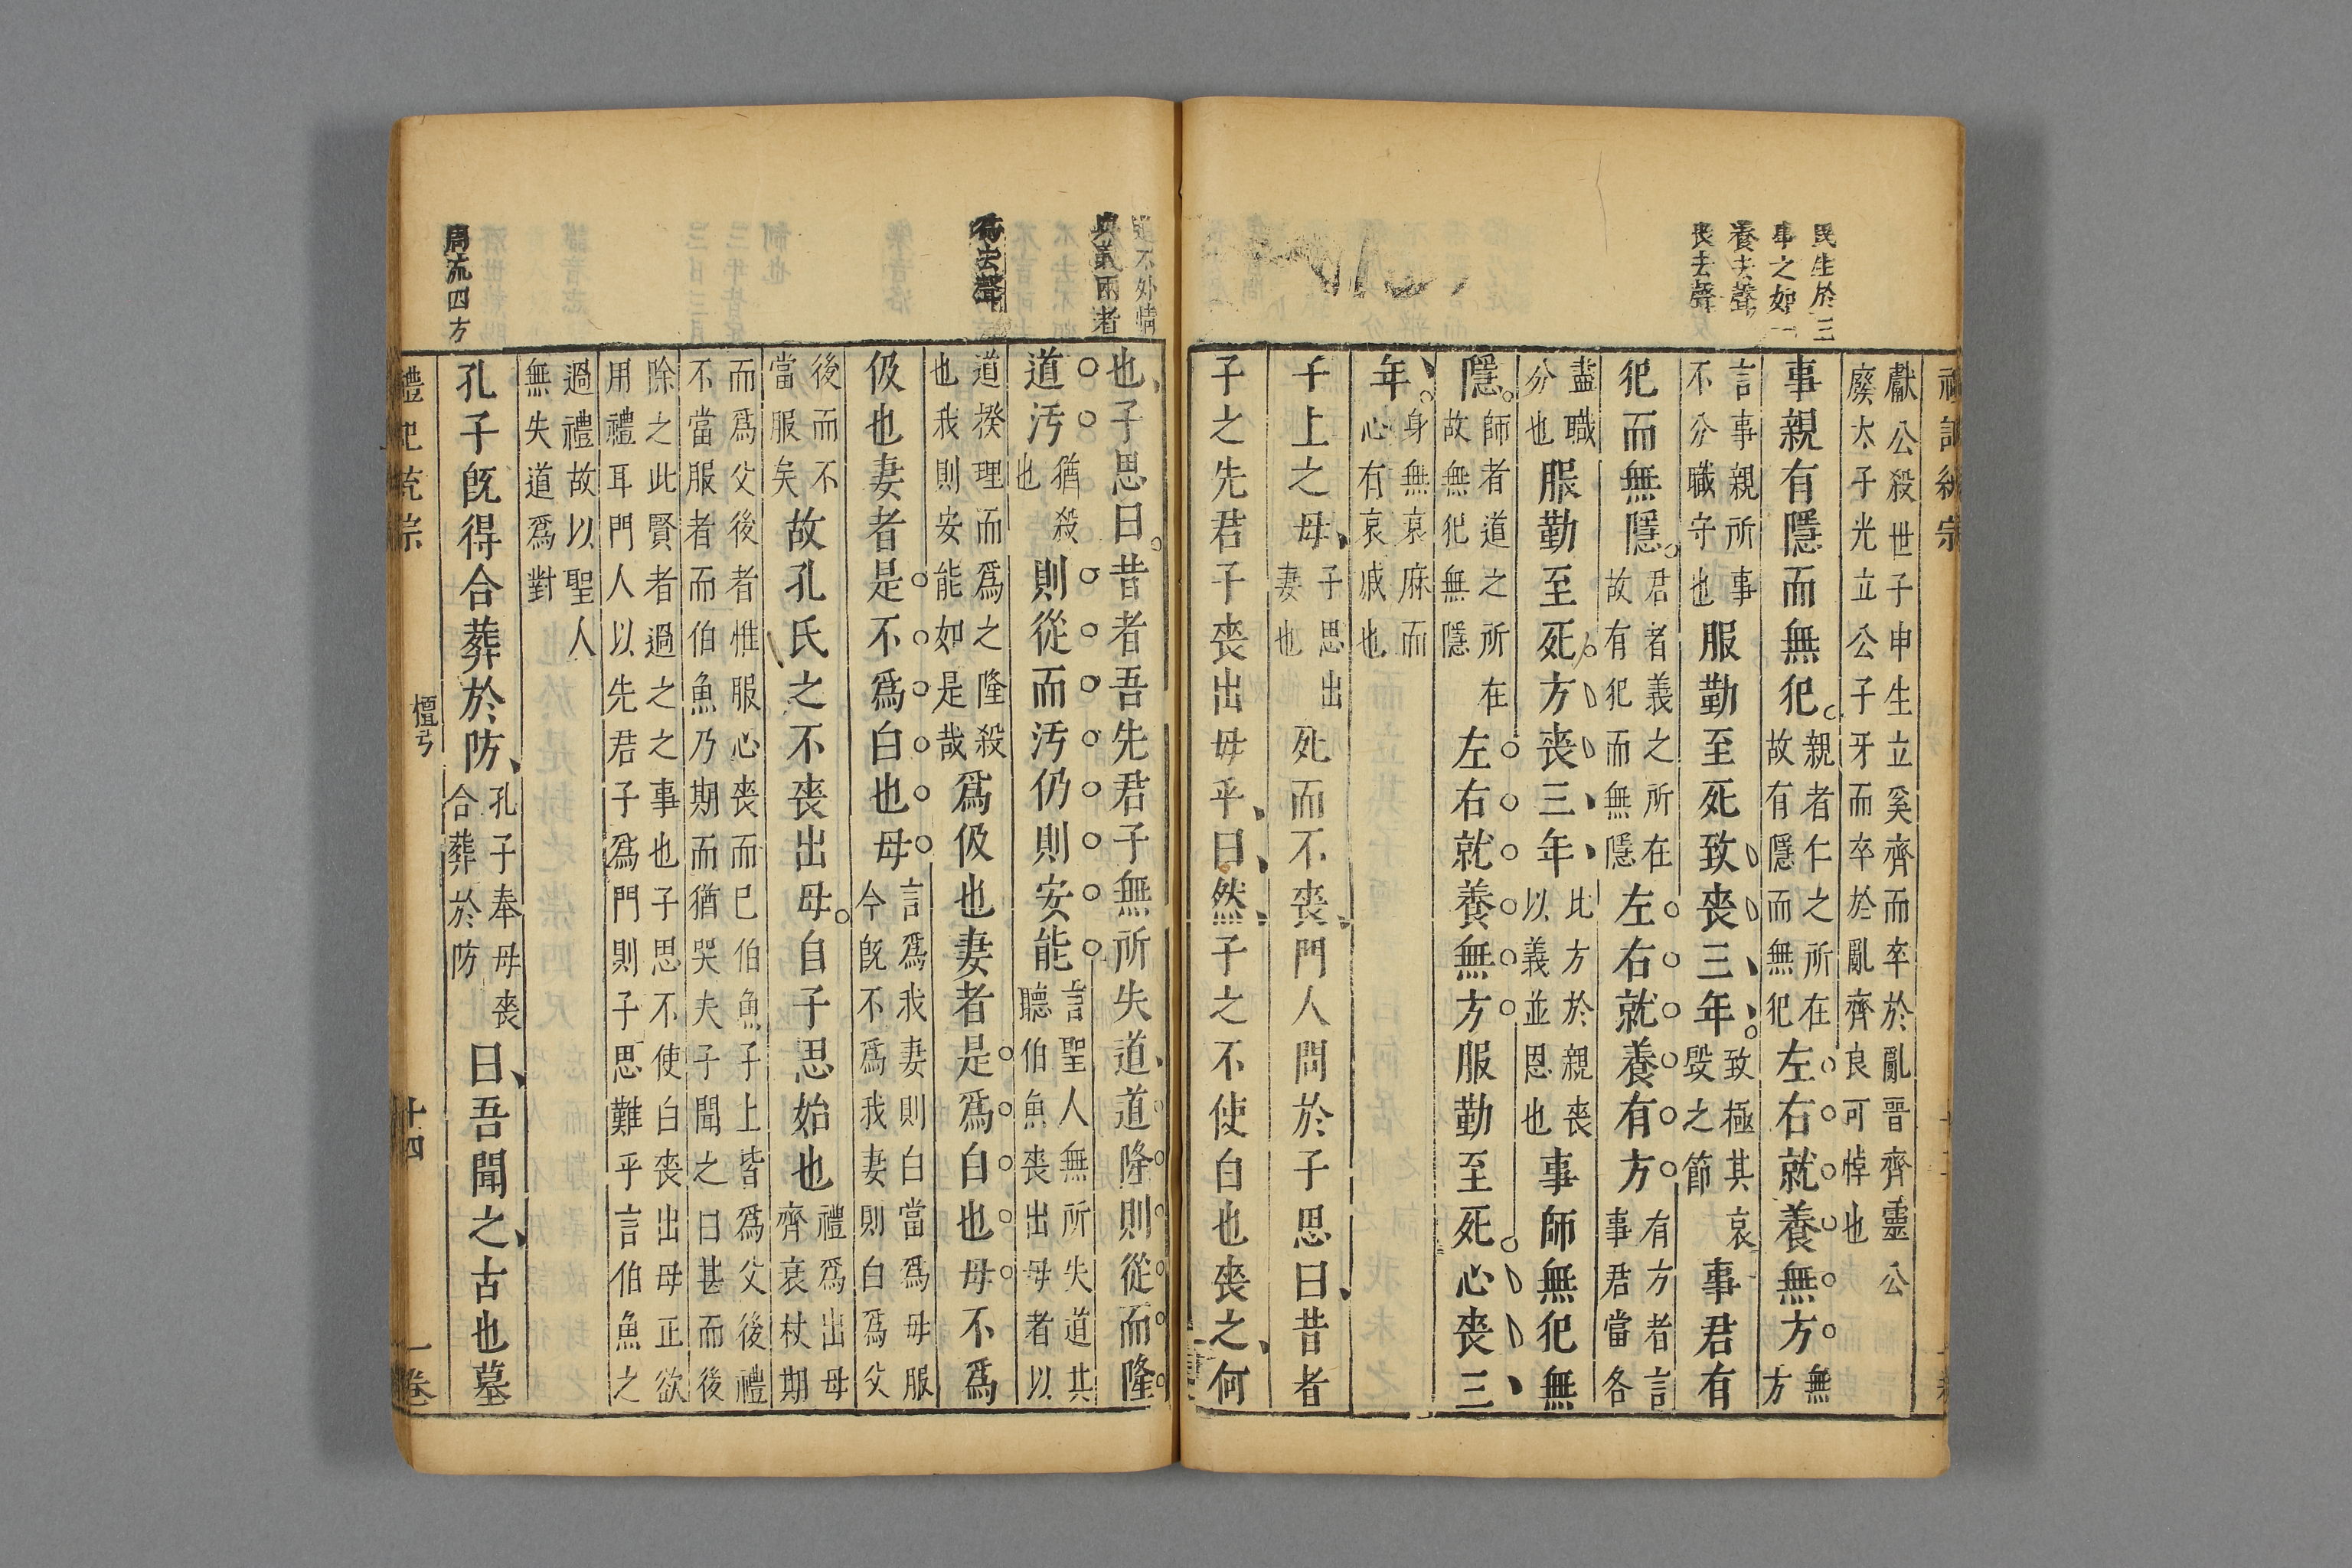 民生於三
事之如一
養去聲
喪去聲
獻公殺世子申生立奚齊而卒於亂晋齊靈公
廢太子光立公子牙而卒於亂齊良可悼也
事親有隱而無犯親者仁之所在故有隱而無犯左右就養無方無方
言事親所事不分職守也服勤至死致喪三年致極其哀毀之節事君有
犯而無隱君者義之所在故有犯而無隱左右就養有方有方者言事君當各
盡職分也服勤至死方喪三年比方於親喪以義並恩也事師無犯無
隱師者道之所在故無犯無隱左右就養無方服勤至死心喪三
年身無哀麻而心有哀戚也
子上之母子思出妻也死而不喪門人問於子思曰昔者
子之先君子喪出母乎曰然子之不使白也喪之何
道不外情
與義兩者
爲去聲
周流四方
也子思曰昔者吾先君子無所失道道隆則從而隆
道汚猶殺也則從而汚伋則安能言聖人無所失道其聽伯魚喪出母者以
道揆理而爲之隆殺也我則安能如是哉爲伋也妻者是爲白也母不爲
伋也妻者是不爲白也母言爲我妻則白當爲母服今旣不爲我妻則白爲父
後而不當服矣故孔氏之不喪出母自子思始也禮爲出母齊衰杖期
而爲父後者惟服心喪而已伯魚子上皆爲父後禮
不當服者而伯魚乃期而猶哭夫子聞之曰甚而後
除之此賢者過之之事也子思不使白喪出母正欲
用禮耳門人以先君子爲問則子思難乎言伯魚之
過禮故以聖人
無失道爲對
孔子旣得合葬於防孔子奉母喪合葬於防曰吾聞之古也墓
檀弓
十四
一卷